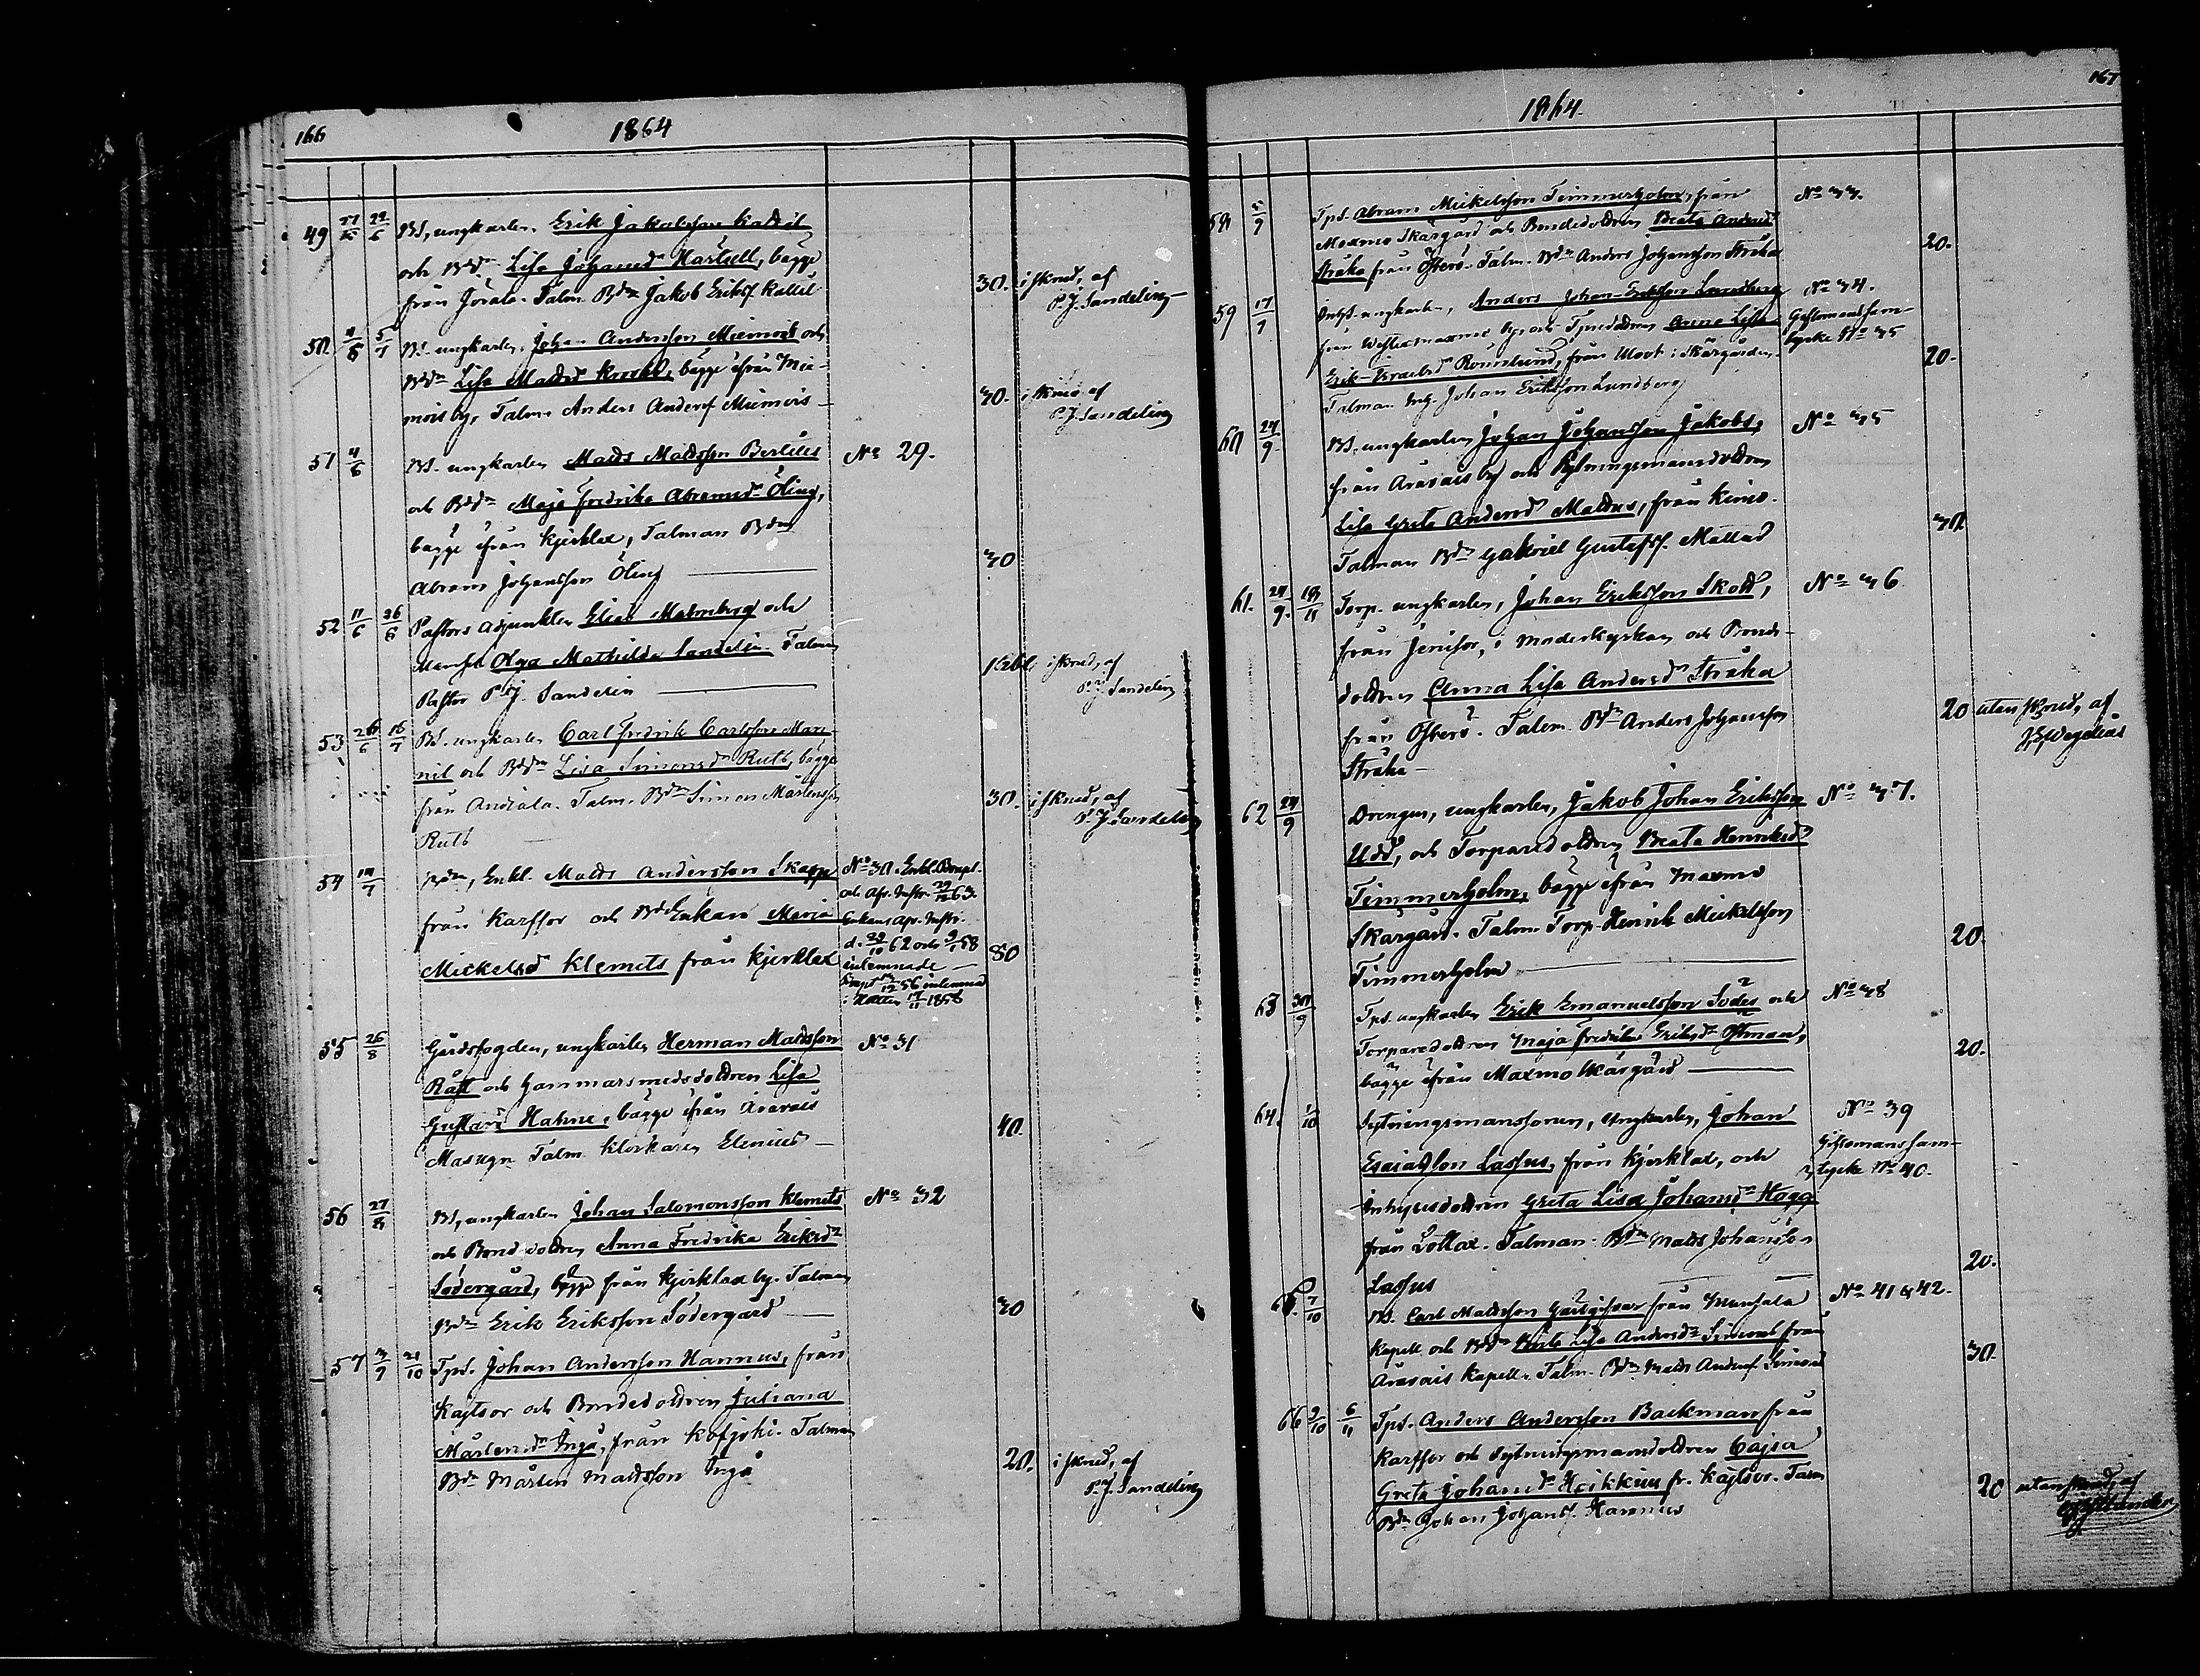 166
1864
49 22/6 BS, ungkarlen, Erik Jakobsson Kattil
och Bdr Lisa Johansdr Martell, bägge
från Jörala. Talm. Bdn Jakob Erikss. Kattil
30. i skrud, af
P. J. Sandelin
50 5/7 BS. ungkarlen, Johan Andersson Miemois och
Bdr Lisa Mattsd bägge ifrån Mie-
mois by, Talm. Anders Anderss Miemois
30. i skrud af
P. J. Sandelin
51 4/6 BS. ungkarlen Matts Mattsson Bertills
och Bdr Maja Fredrika Abramsdr Öling,
bägge ifrån Kjerklax, Talman Bdn
Abram Johansson Öling
No 29.
30
52 11/6 26/6 Pastors adjunkten Elias Malmberg och
Mamsell Olga Mathilda Sandelin. Talman
Pastor P. J. Sandelin
1 Rbl. i skrud, af
P. J. Sandelin
53 26/6 16/7 BS. ungkarlen Carl Fredrik Carlsson Mar-
nil och Bdr Lisa Simonsdr Rutb, bägge
från Andiala. Talm. Bdn Simon Mårtensson
Rutb
30. i skrud, af
P. J. Sandelin
54 10/7 Bdn, Enkl. Matts Andersson Skapp
från Karffor och BdEnkan Maria
Mickelsd Klemets från Kjerklax
No 30. Enkl.
och Afv. Instr. 63.
Enkans Afv. Instr.
d. 29/10 62 och 9/1 58
inlemnade
12 56 inlemnad
1858
80
55 26/8 Gårdsfogden, ungkarlen Herman Mattsson
Råst och Hammarsmedsdottren Lisa
Gustava Hahne, bägge ifrån Oravais
Masugn. Talm. Klockaren Elenius
No 31
40
56 27/8 BS, ungkarlen Johan Salomonsson Klemets
och Bondedottren Anna Fredrika Eriksdr
Södergård, bägge från Kjerklax by. Talman
Bdn Erik Eriksson Södergård
No 32
30
57 3/9 21/10 Tps. Johan Andersson Hannus, från
Kajtsor och Bondedottren Juliana
Mårtensdr Ingå, från Kofjoki. Talman
Bdn Mårten Mattsson Ingå
20. i skrud, af
P. J. Sandelin
167
1864.
58 Tps. Abram Mickelsson Timmerholm, från
Maxmo Skärgård och Bondedottren Beata Andersdr
Stråka från Österö. Talm. Bdn Anders Johansson Stråka
No 33.
20.
59 ungkarlen, Anders Johan Eriksson Lundberg
från Westermaxmo by, och Tpsdottren Anna Lisa
Erik-Israelsd Rönnlund, från i Skärgården
Talman Johan Eriksson Lundberg
No 34.
Giftomanssam-
tycke No 35
20.
60 24/9 BS, ungkarlen, Johan Johansson Jakobs,
från Oravais by och Sytningsmansdottren
Lisa Greta Andersdr Mattus, från Kimo.
Talman Bdn Gabriel Gustafss. Mattus
No 35
30.
61. 24/9. Torp. ungkarlen, Johan Eriksson Skott,
från Jenisor, i Moderkyrkan och Bonde-
dottren Anna Lisa Andersdr Stråka
från Österö. Talm. Bdn Anders Johansson
Stråka
No 36
20 utan skrud, af
Wegelius
62 24/9 Drengen, ungkarlen, Jakob Johan Eriksson
Udd, och Torparedottren Beata Henriksdr
Timmerholm, bägge ifrån Maxmo
Skärgård. Talm. Torp. Henrik Mickelsson
Timmerholm
No 37.
20
63 30/9 Tps. ungkarlen Erik Emanuelsson Sodes och
Torparedottren Maja Fredrika Eriksdr Östman,
bägge ifrån Maxmo Skärgård
No 38
20.
64. 1/10 Sytningsmanssonen, ungkarlen, Johan
Esaiasson Lassus, från Kjerklax, och
Inhysesdottren Greta Lisa Johansdr Kogg
från Lottax. Talman. Bdn Matts Johansson
Lassus
No 39
Giftomanssam-
tycke No 40.
20.
65. 7/10 BS. Carl Mattsson från Munsala
Kapell och Bdr Lisa Andersdr Simons från
Oravais Kapell. Talm. Bdn Matts Anderss Simons
No 41 & 42.
30.
66 9/10 6/11 Tps. Anders Andersson Backman från
Karffor och Sytningsmansdottren Cajsa
Greta Johansdr Heikkius fr. Kajtsor. Talm
Bdn Johan Johanss. Hannus
20 utan skrud, af